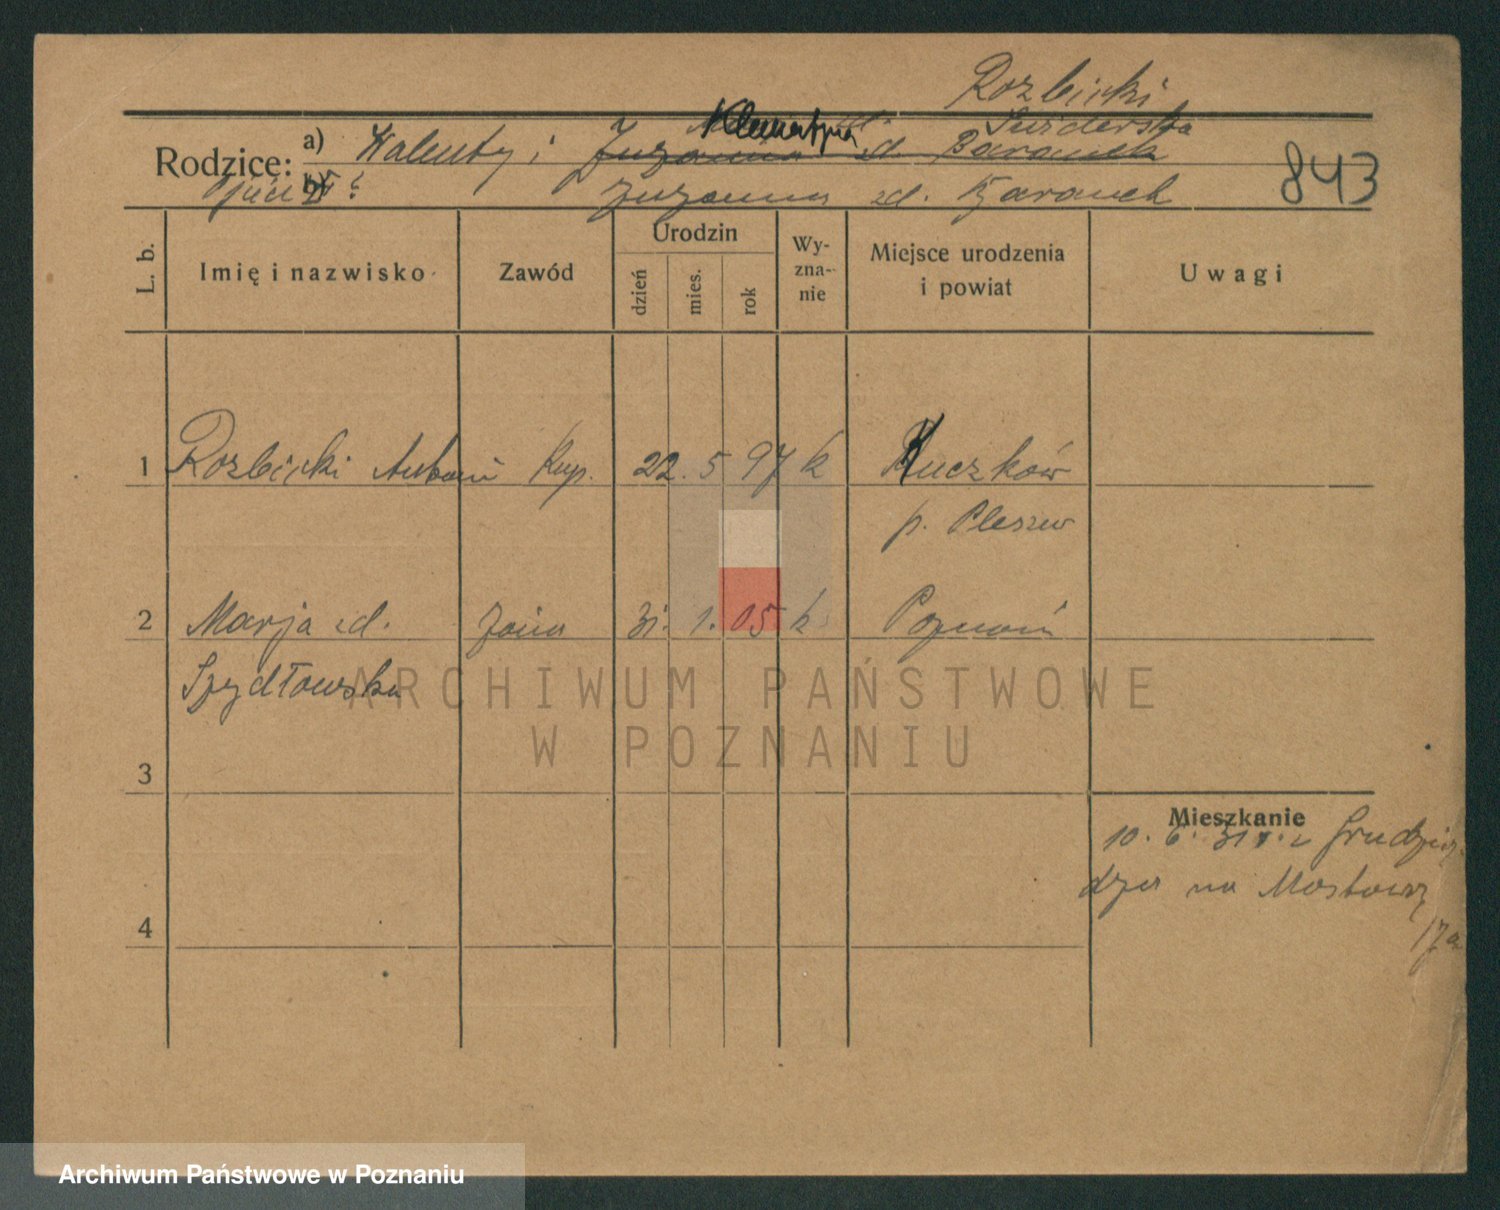 Rozbicki
Klementyna zd. Świderska
Rodzice: a) Walenty i Zuzanna zd. Baranek
b) Zuzanna zd. Baranek
843
L. b.
Imię i nazwisko
Zawód
Urodzin
dzień
mies.
rok
Wy-
zna-
nie
Miejsce urodzenia
i powiat
Uwagi
1 Rozbicki Antoni kup. 22. 5 97 k Kuczków
p. Pleszew
2 Marja zd. żona 31. 1. 05 k Poznań
Szydłowska
ARCHIWUM PAŃSTWOWE
W POZNANIU
3
Mieszkanie
10. 6. 31 r. z
na Mostowej
4
17a
Archiwum Państwowe w Poznaniu